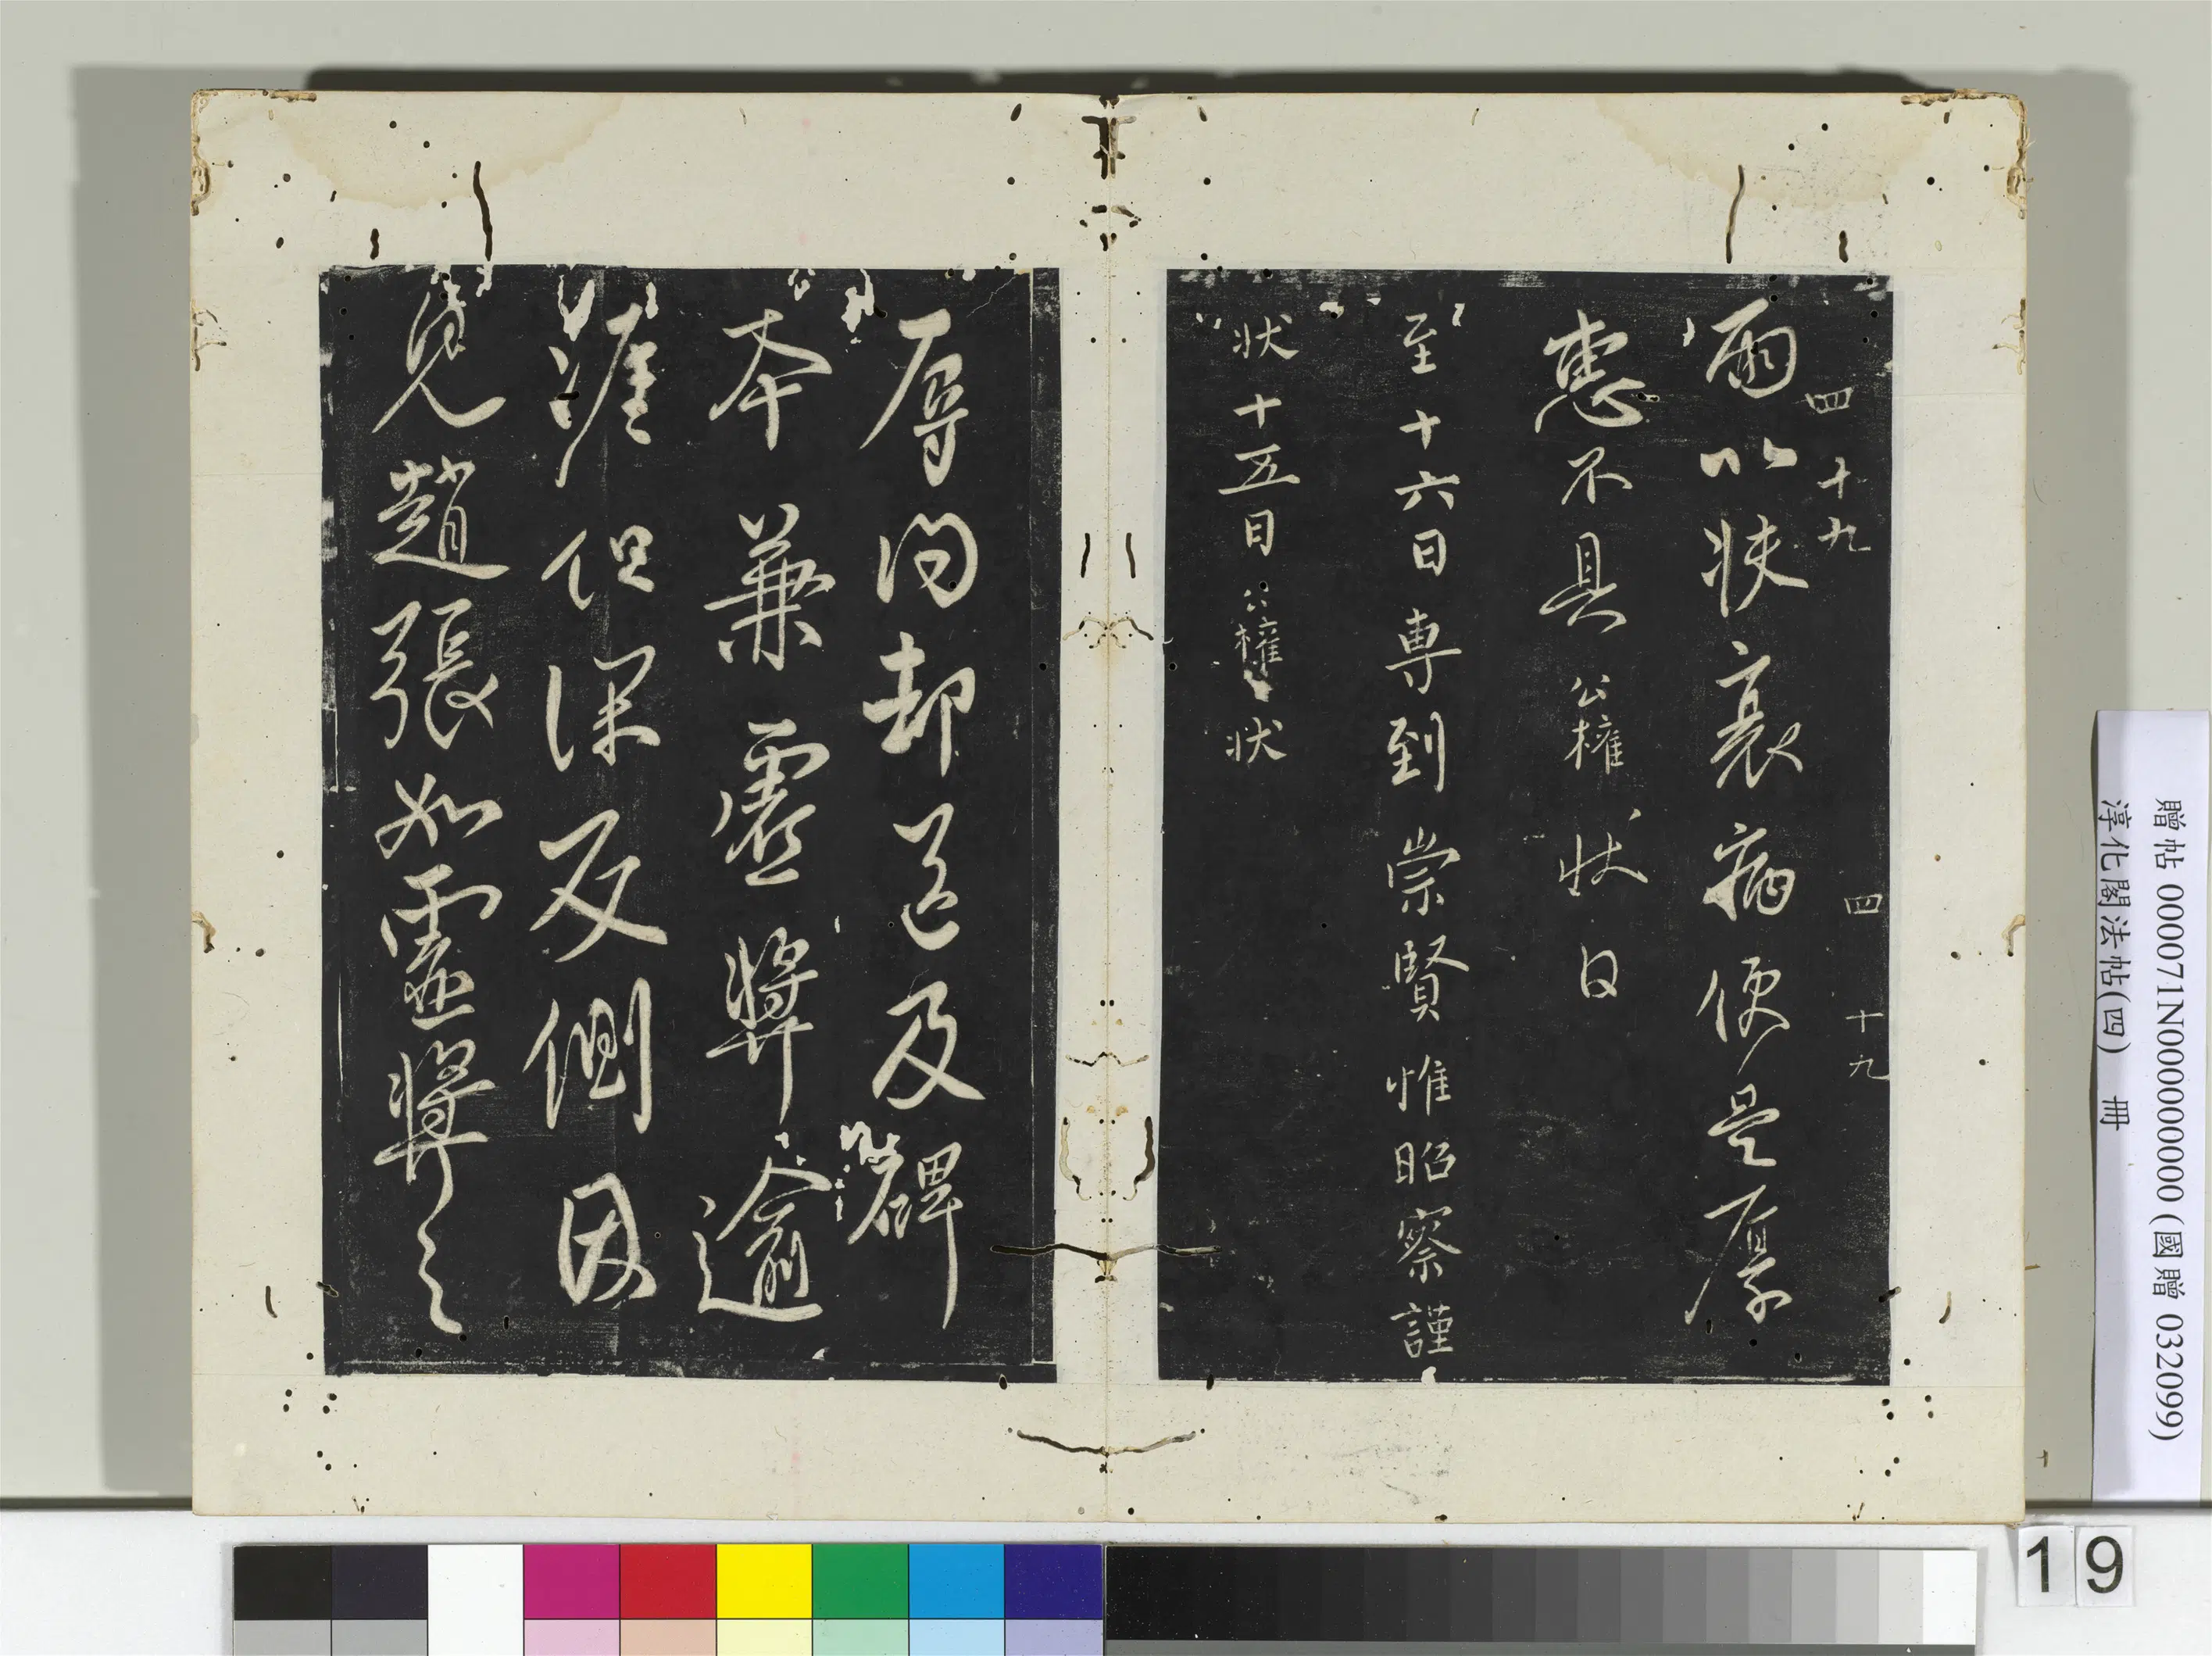 四十九
四 十九
雨以狀衰病便是厚
惠不具公權狀日
至十六日專到崇賢惟昭察謹
狀十五日公權狀
辱問卻送及碑
本兼虛獎逾
涯但深反側因
見趙張如虛獎之
贈帖 0000071N000000000 (國贈 032099)
淳化閣法帖(四) 冊
19